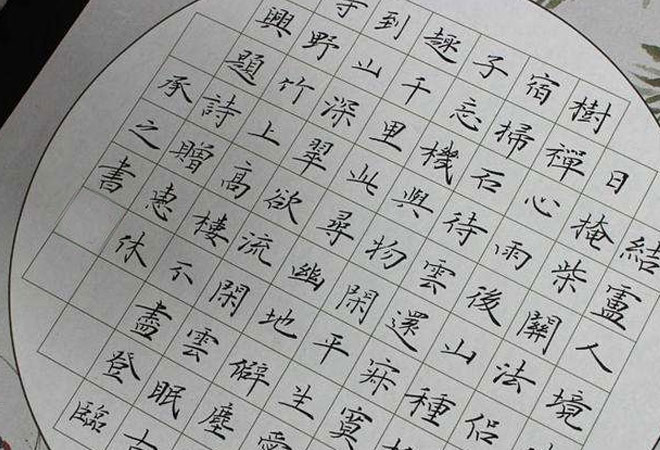 結廬人境
日掩柴關法侶
樹禪心雨後山種
宿掃石待雲還寂寞
子忘機與物閑平生愛
趣千里此尋幽地僻塵
到山深翠欲流閑雲眠古
寺野竹上高樓不盡登臨
興題詩贈惠休
承之書